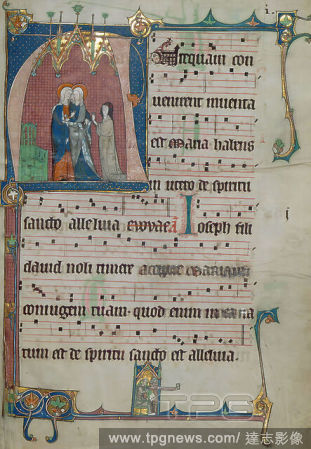 i.
Antequam con
uenirent inuenta
est maria habens
in utero de spiritu
sancto alleluia euouae Ioseph fili
dauid noli timere accipere mariam
coniugem tuam. quod enim in ea na
i
tum est de spiritu sancto est alleluia.
TPG
www.tpgnews.com/ 達志影像